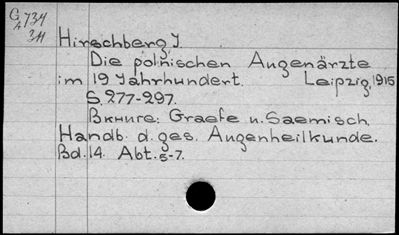 G 734
A 311
Hirschberg J.
Die polnischen Augenärzte
im 19 Jahrhundert. Leipzig, 1915
S. 277-297.
Вкниге: Graefe u. Saemisch
Handb. d. ges. Augenheilkunde.
Bd. 14. Abt. 5-7.